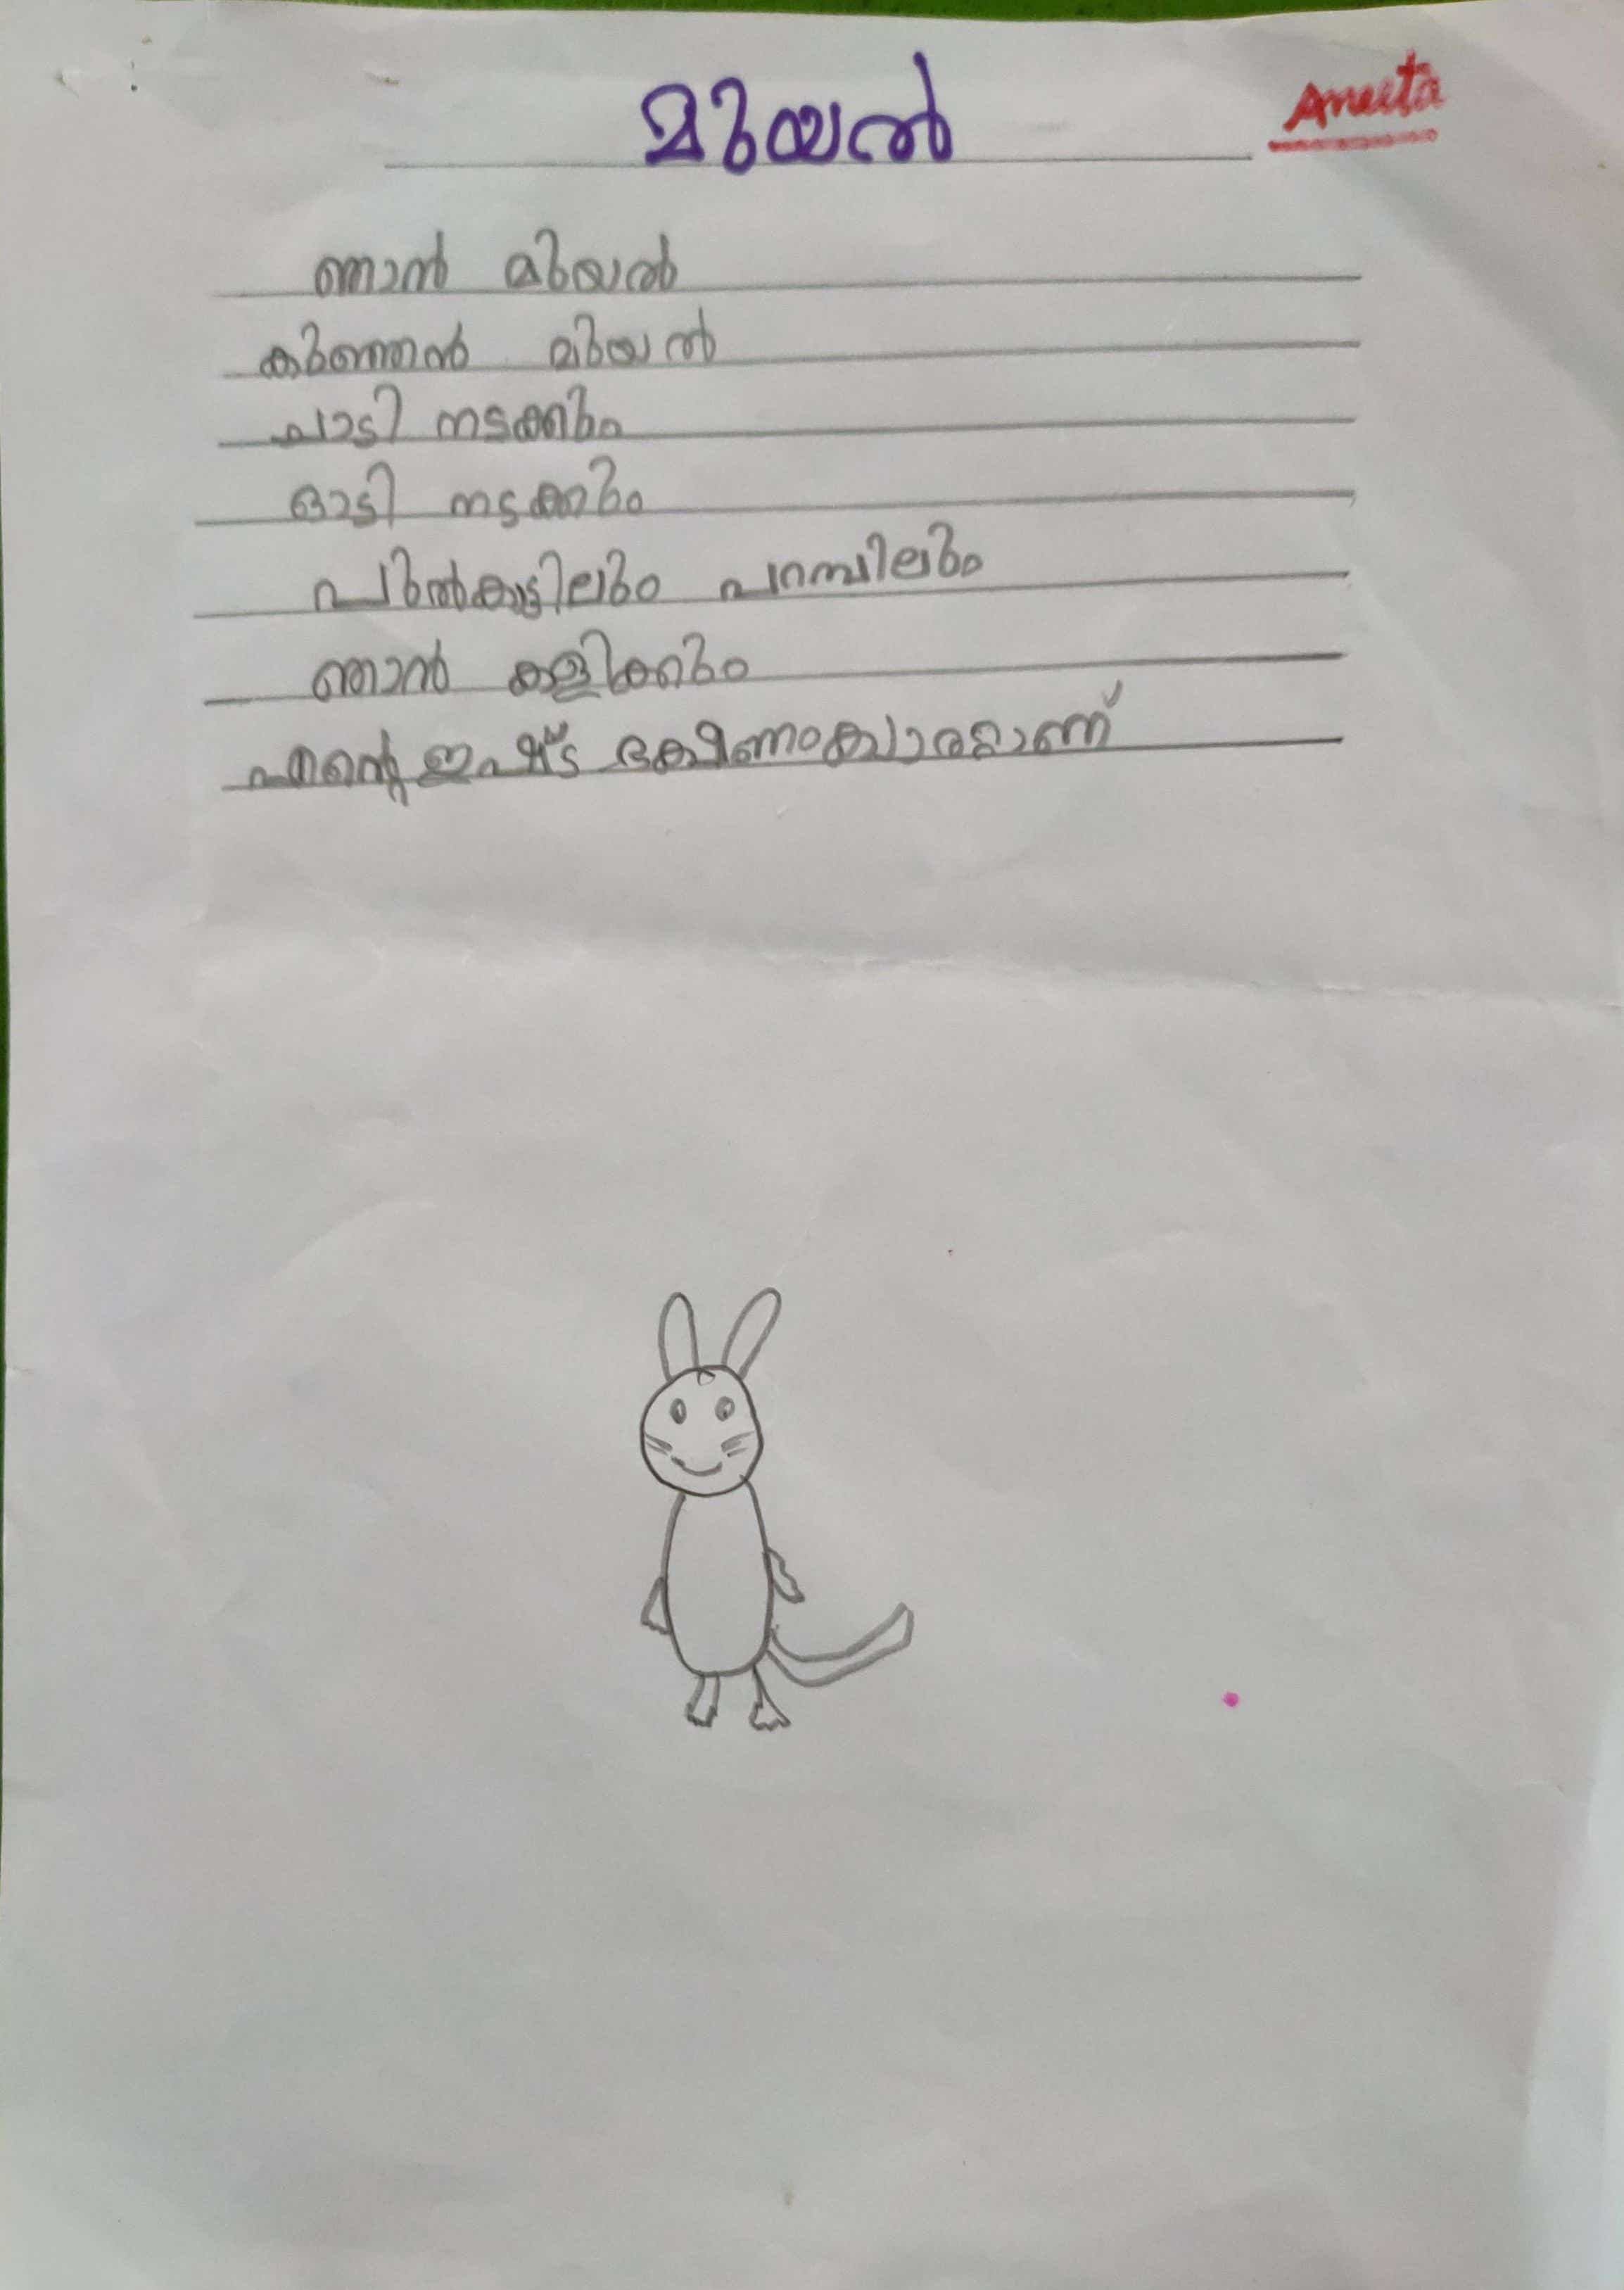 മുയൽ
Aneeta
ഞാൻ മുയൽ
കുഞ്ഞൻ മുയൽ
ചാടി നടക്കും
ഓടി നടക്കും
പുൽകാട്ടിലും പറമ്പിലും
ഞാൻ കളിക്കും
എന്റെ ഇഷ്ട ഭക്ഷണം ക്യാരറ്റാണ്